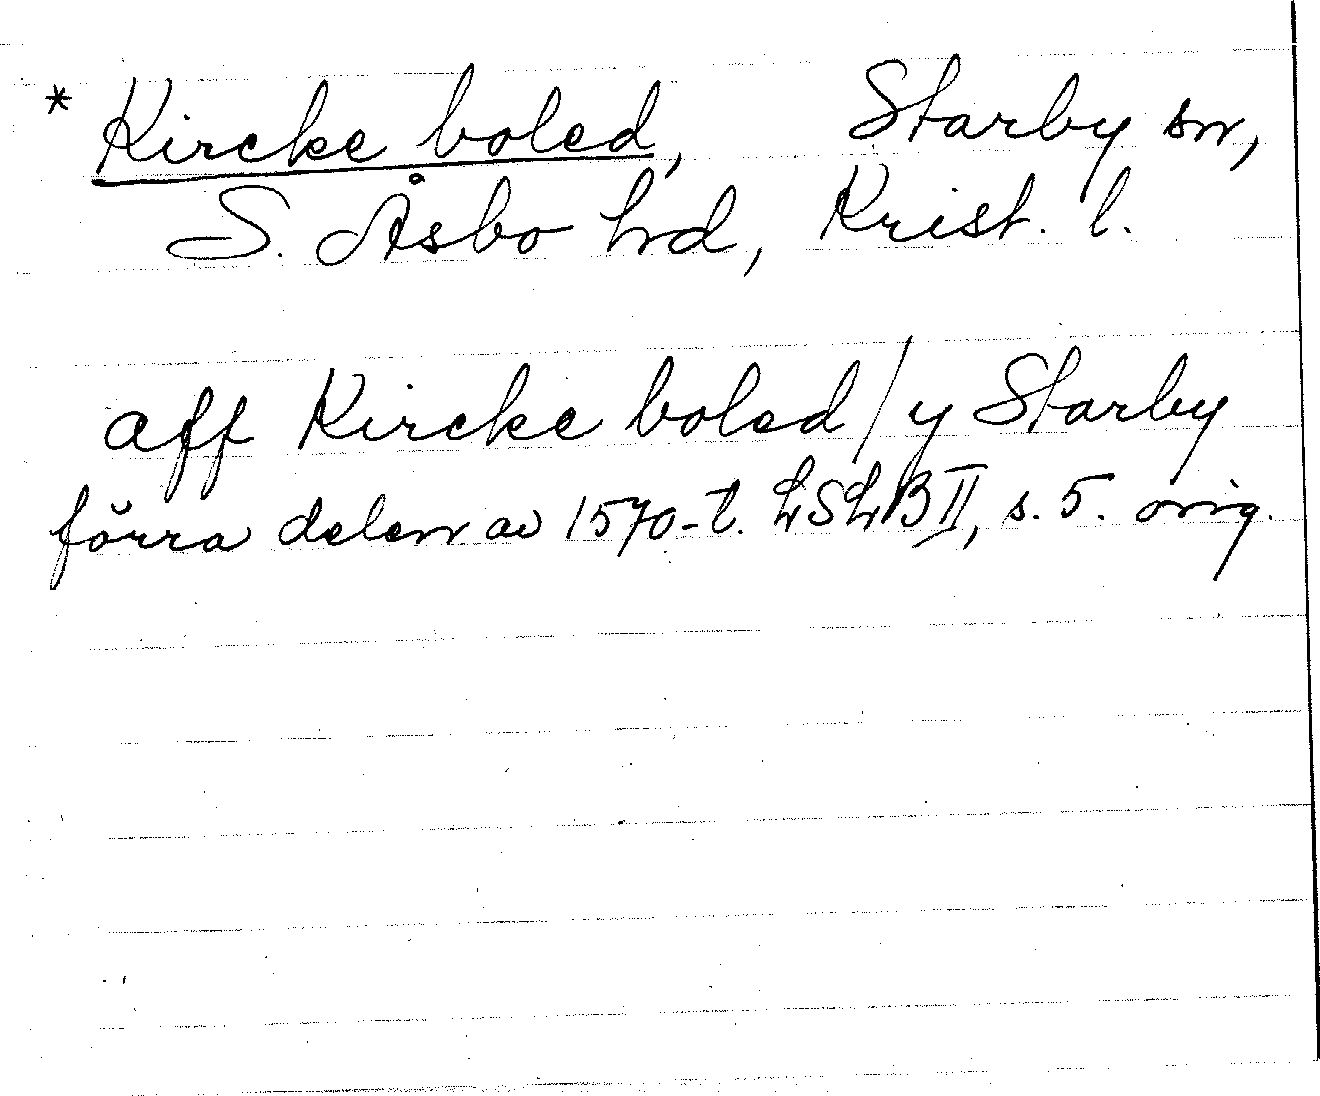 * Kircke boled, Starby sn,
S. Åsbo hd, Krist. l.
aff Kircke boled / y Starby
förra delen av 1570-t. LSLB II, s. 5. orig.